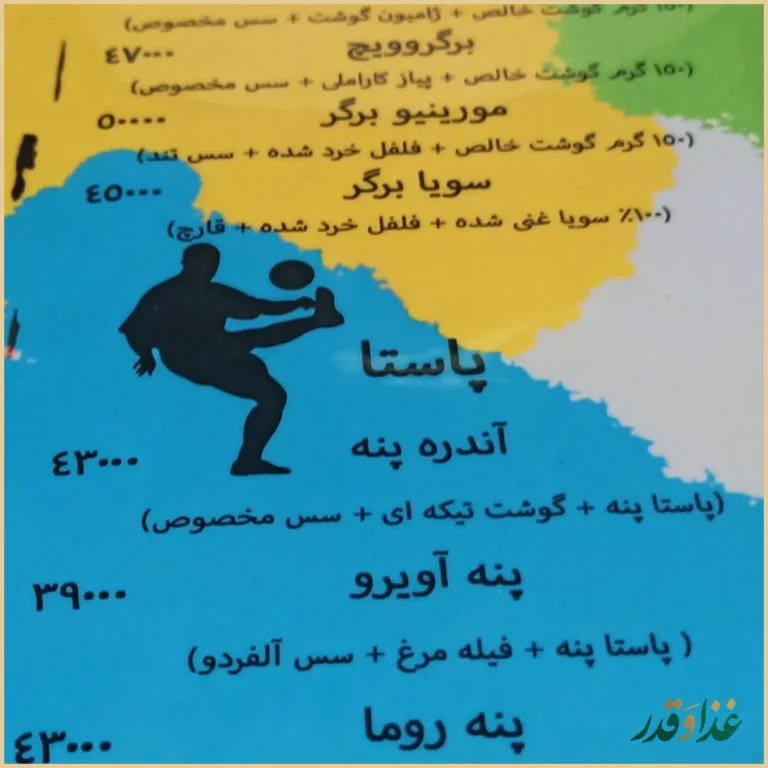 (۱۵۰ گرم گوشت خالص + ژامبون گوشت + سس مخصوص)
برگروویچ ٤٧٠٠٠
(۱۵۰ گرم گوشت خالص + پیاز کاراملی + سس مخصوص)
مورینیو برگر ٥٠٠٠٠
(۱۵۰ گرم گوشت خالص + فلفل خرد شده + سس تند)
سویا برگر ٤٥٠٠٠
(۱۰۰٪ سویا غنی شده + فلفل خرد شده + قارچ)
پاستا
آندره پنه ٤٣٠٠٠
(پاستا پنه + گوشت تیکه ای + سس مخصوص)
پنه آویرو ٣٩٠٠٠
( پاستا پنه + فیله مرغ + سس آلفردو)
پنه روما ٤٣٠٠٠
غذا و قدر